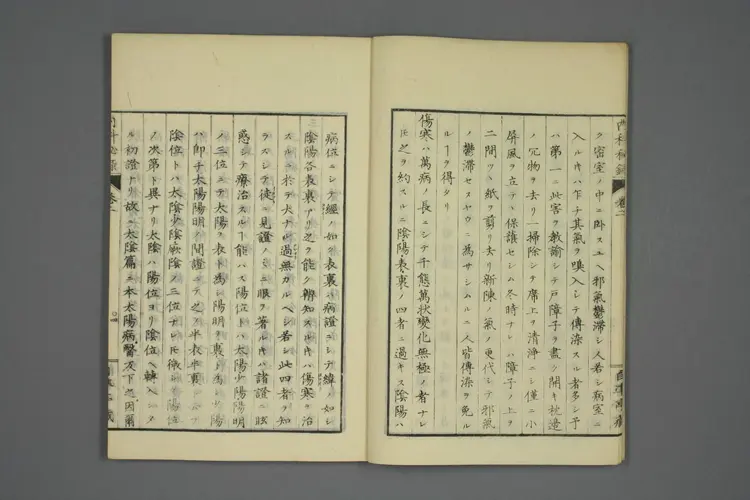 ク密室ノ中ニ臥スユヘ邪氣鬱滯シ人若シ病室ニ
入ルキハ乍チ其氣ヲ嗅入シテ傳染スル者多シ予
ハ第一ニ此害ヲ教諭シテ戸障子ヲ盡ク開キ枕邉
ノ冗物ヲ去リ掃除シテ席上ヲ清淨ニシ僅ニ小
屏風ヲ立テヽ保護セシム冬時ナレハ障子ノ上ヲ
二間ツヽ紙ヲ剪リ去リ新陳ノ氣ノ更代シテ邪氣
ノ鬱滯セヌヤウニ為サシムルニ人皆傳染ヲ免ル
ルヿヲ得タリ
傷寒ハ萬病ノ長ニシテ千態萬状變化無極ノ者ナレ
𪜈之ヲ約スルニ陰陽表裏ノ四者ニ過キス陰陽ハ
病位ニシテ經ノ如ク表裏ハ病證ニシテ緯ノ如シ
陰陽各表裏アリ之ヲ能ク辨知スルキハ傷寒ヲ治
スルニ於テ大ナル過無カルヘシ若シ此四者ヲ知
ラスシテ徒ニ見證ノミニ眼ヲ著ルキハ諸證ニ眩
惑シテ療治スルヿ能ハス陽位トハ太陽少陽陽明
ノ三位ニテ太陽ヲ表ト為シ陽明ヲ裏ト為シ少陽
ハ即チ太陽陽明ノ間證ニテ之ヲ半表半裏ト
陰位トハ太陰少陰厥陰ノ三位ナレ𪜈微シク
ノ次第ト異ナリ太陰ハ陽位ヨリ陰位ヘ轉入シタ
ル初證ナリ故ニ太陰篇ニ本太陽病醫反下之因爾
内科秘録 卷二
内科秘録 卷二